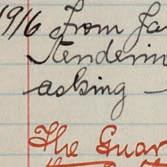 1916 From Ja
Tenderin
asking -
The Guar